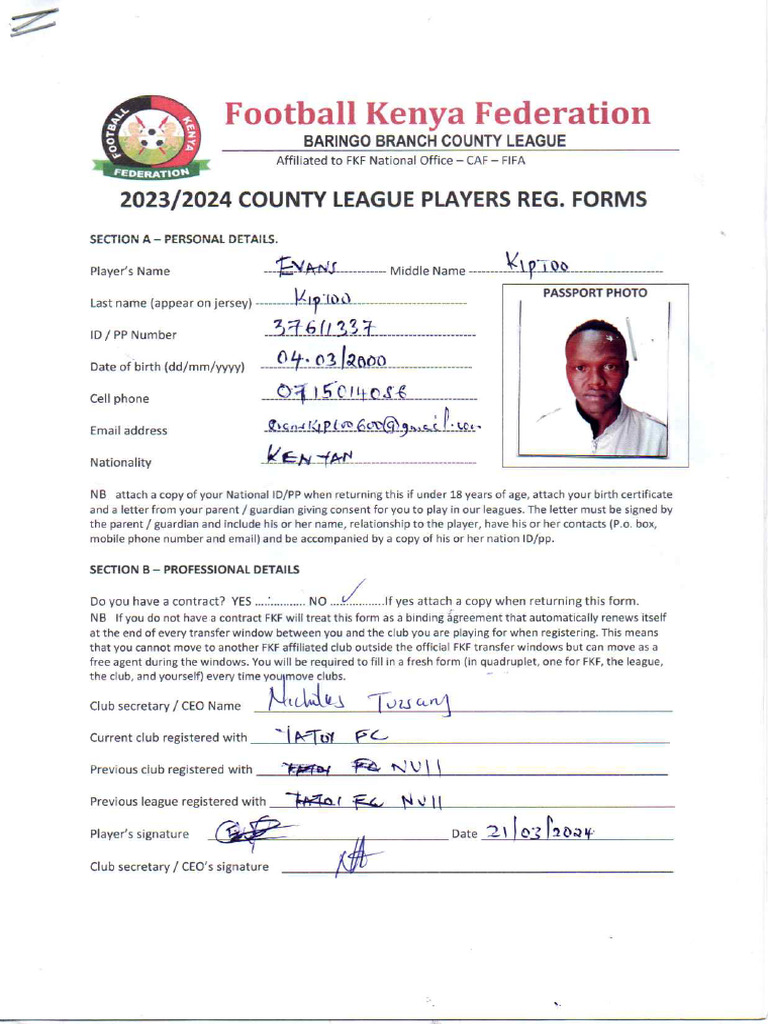 FOOTBALL KENYA FEDERATION
Football Kenya Federation
BARINGO BRANCH COUNTY LEAGUE
Affiliated to FKF National Office – CAF – FIFA
2023/2024 COUNTY LEAGUE PLAYERS REG. FORMS
SECTION A – PERSONAL DETAILS.
Player's Name EVANS Middle Name KIPTOO
Last name (appear on jersey) KIPTOO
PASSPORT PHOTO
ID / PP Number 37611337
Date of birth (dd/mm/yyyy) 04.03/2000
Cell phone 0715014086
Email address
Nationality KENYAN
NB attach a copy of your National ID/PP when returning this if under 18 years of age, attach your birth certificate
and a letter from your parent / guardian giving consent for you to play in our leagues. The letter must be signed by
the parent / guardian and include his or her name, relationship to the player, have his or her contacts (P.o. box,
mobile phone number and email) and be accompanied by a copy of his or her nation ID/pp.
SECTION B – PROFESSIONAL DETAILS
Do you have a contract? YES ................ NO ....✓............If yes attach a copy when returning this form.
NB If you do not have a contract FKF will treat this form as a binding agreement that automatically renews itself
at the end of every transfer window between you and the club you are playing for when registering. This means
that you cannot move to another FKF affiliated club outside the official FKF transfer windows but can move as a
free agent during the windows. You will be required to fill in a fresh form (in quadruplet, one for FKF, the league,
the club, and yourself) every time you move clubs.
Club secretary / CEO Name
Current club registered with TATOI FC
Previous club registered with TATOI FC NUll
Previous league registered with TATOI FC NUll
Player's signature Date 21/03/2024
Club secretary / CEO's signature